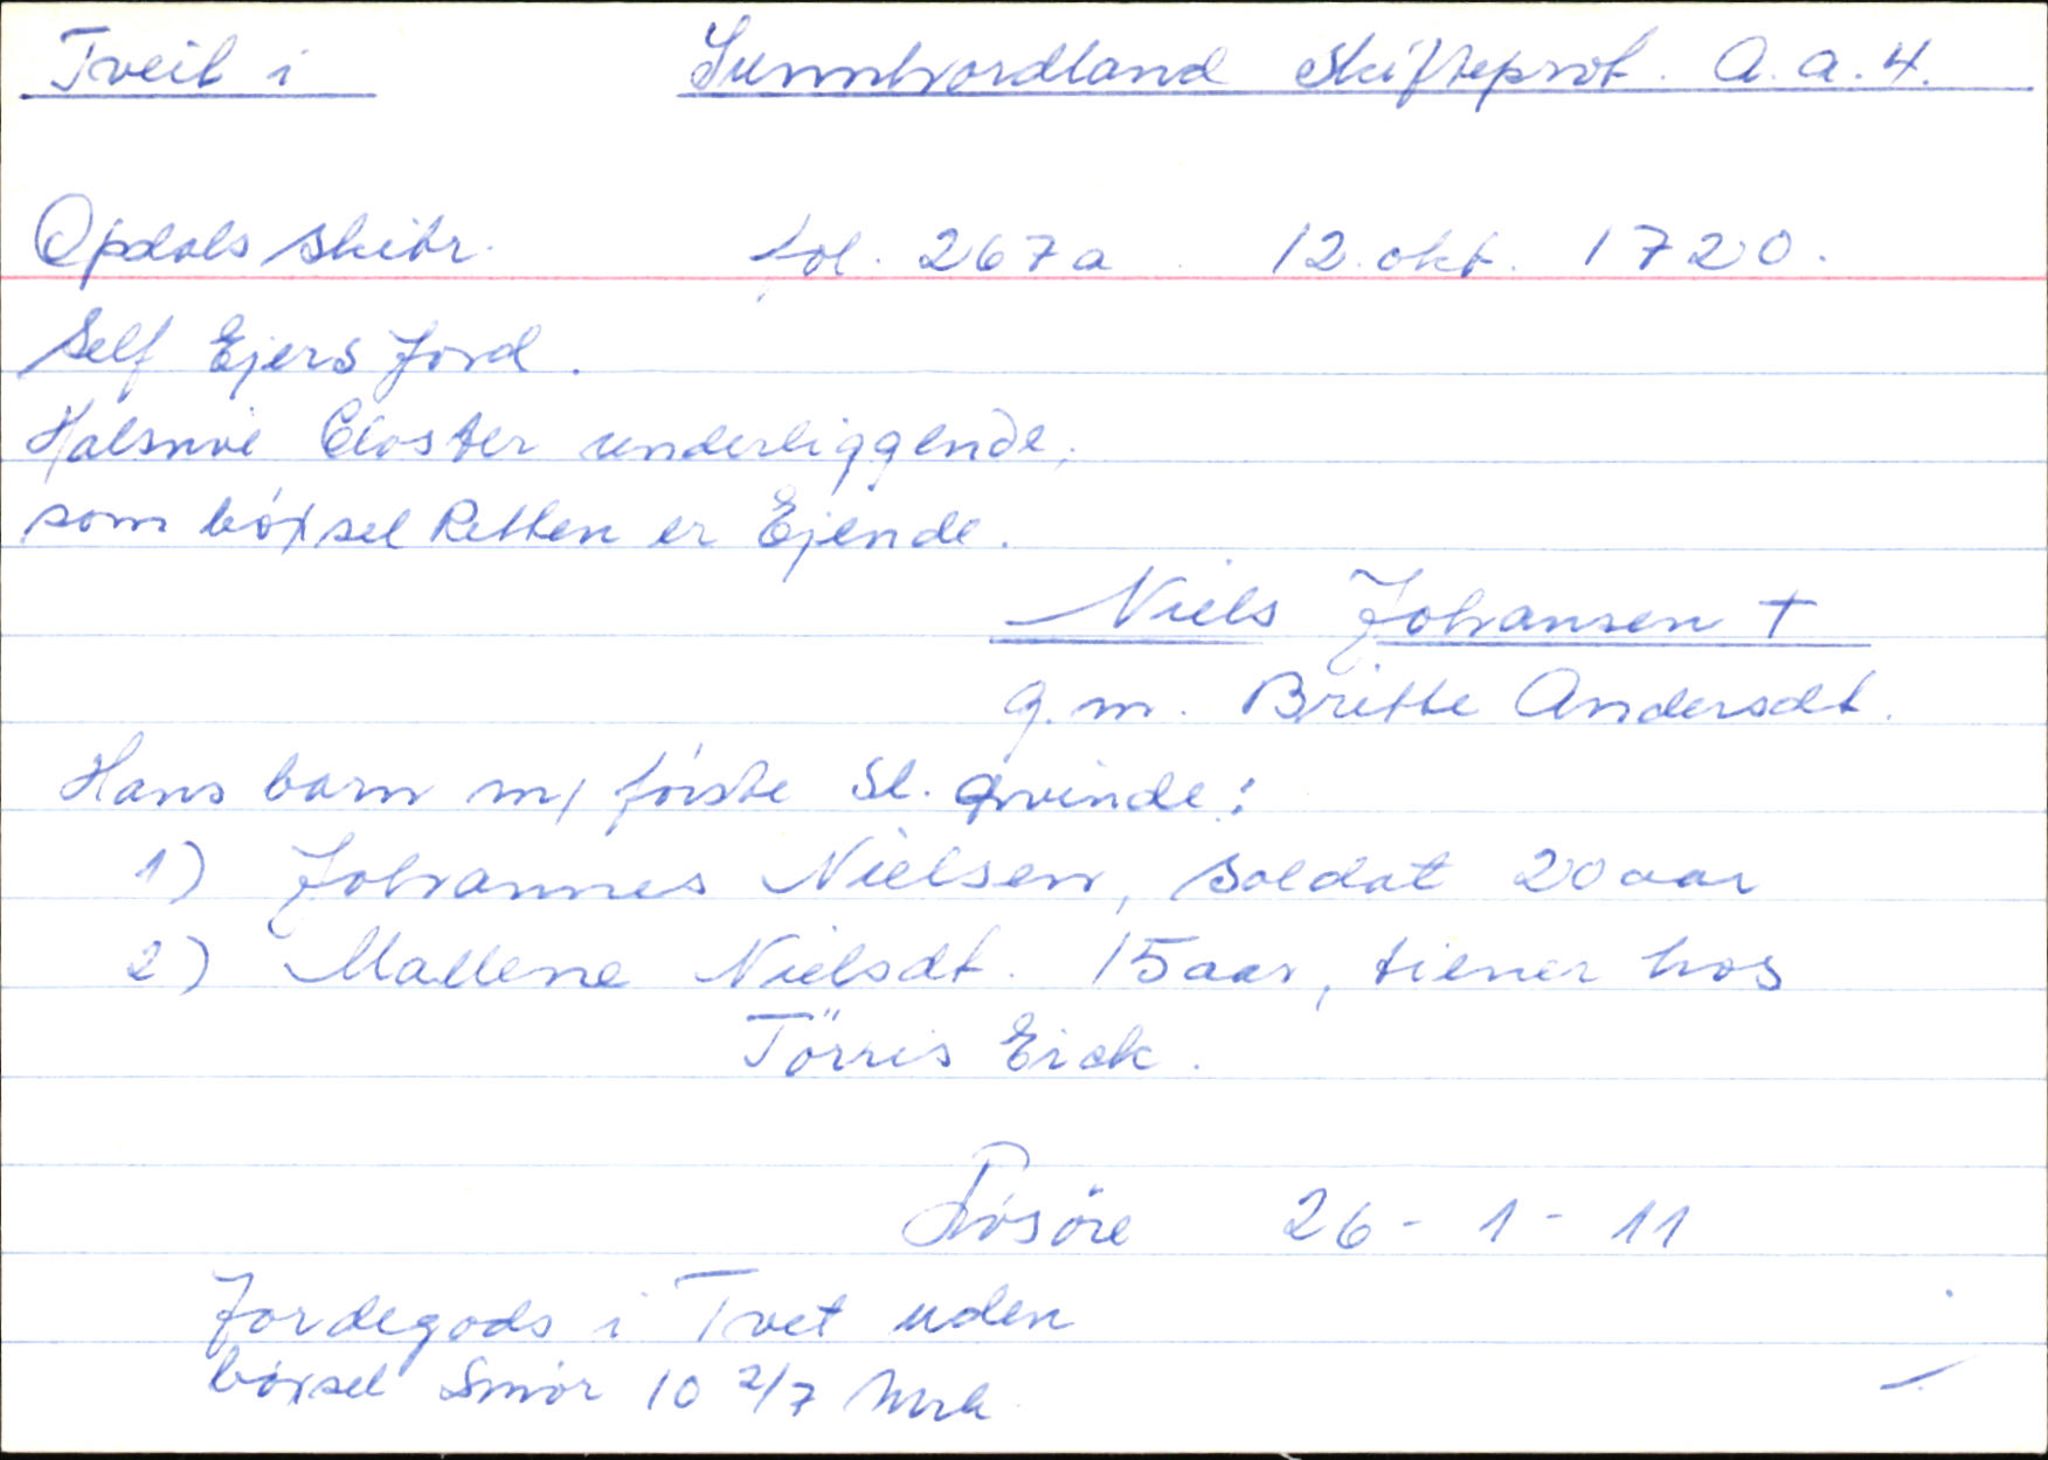 Tveit i Sunnhordland Skifteprot. A.a.4.
Opdals skibr. fol. 267a. 12. okt. 1720.
Self Ejers Jord.
Halsnöe Closter underliggende,
som böxsel Retten er Ejende.
Niels Johansen †
g.m. Britte Andersdt.
Hans barn m/ förste Sl. Qvinde:
1) Johannes Nielsen, Soldat 20 aar
2) Mallene Nielsdt. 15 aar, tiener hos
Törris Eick.
26-1-11
Jordegods i Tvet uden
böxsel Smör 10 2/7 Mrk